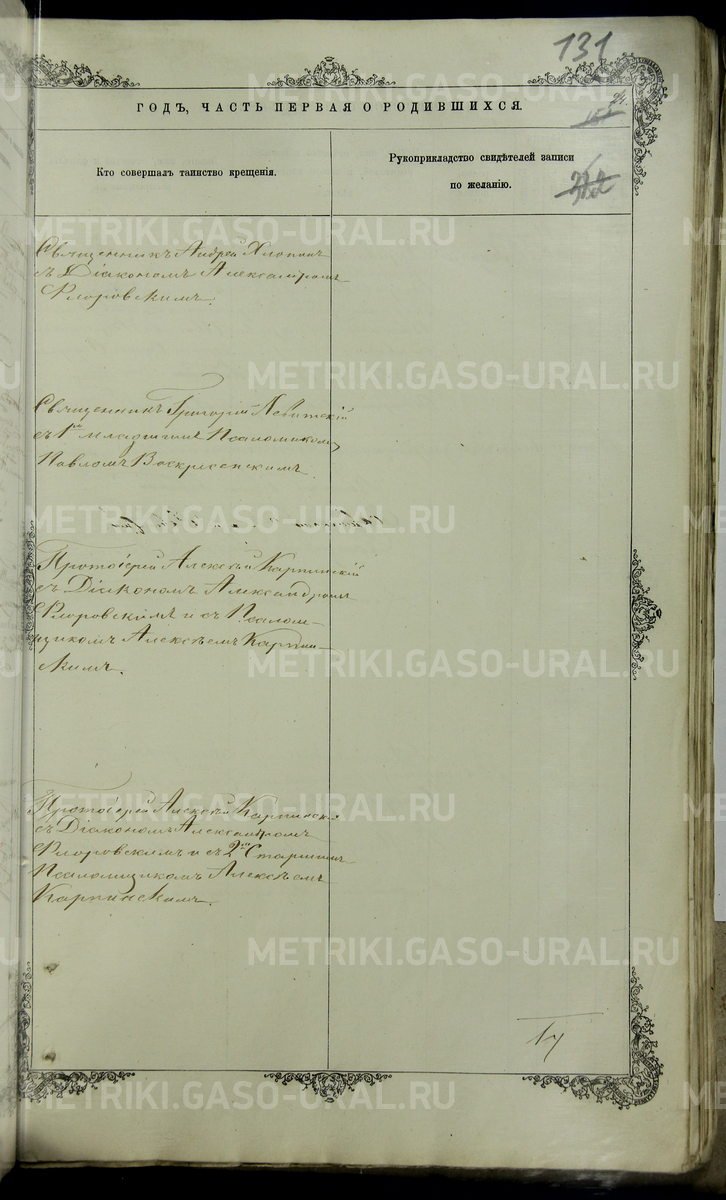 131
ГОДЪ, ЧАСТЬ ПЕРВАЯ О РОДИВШИХСЯ.
Кто совершалъ таинство крещенія.
Рукоприкладство свидѣтелей записи
по желанію.
Священникъ Андрей Хлопинъ
съ Діакономъ Александромъ
Флоровскимъ.
Священникъ Григорій Левитскій
съ 1мъ младшимъ Псаломщикомъ
Павломъ Воскресенскимъ
Протоіерей Алексѣй Карпинскій
съ Діакономъ Александромъ
Флоровскимъ и съ Псалом-
щикомъ Алексѣемъ Карпин-
скимъ.
Протоіерей Алексѣй Карпинскій
съ Діакономъ Александромъ
Флоровскимъ и съ 2мъ Старшимъ
Псаломщикомъ Алексѣемъ
Карпинскимъ.
METRIKI.GASO-URAL.RU